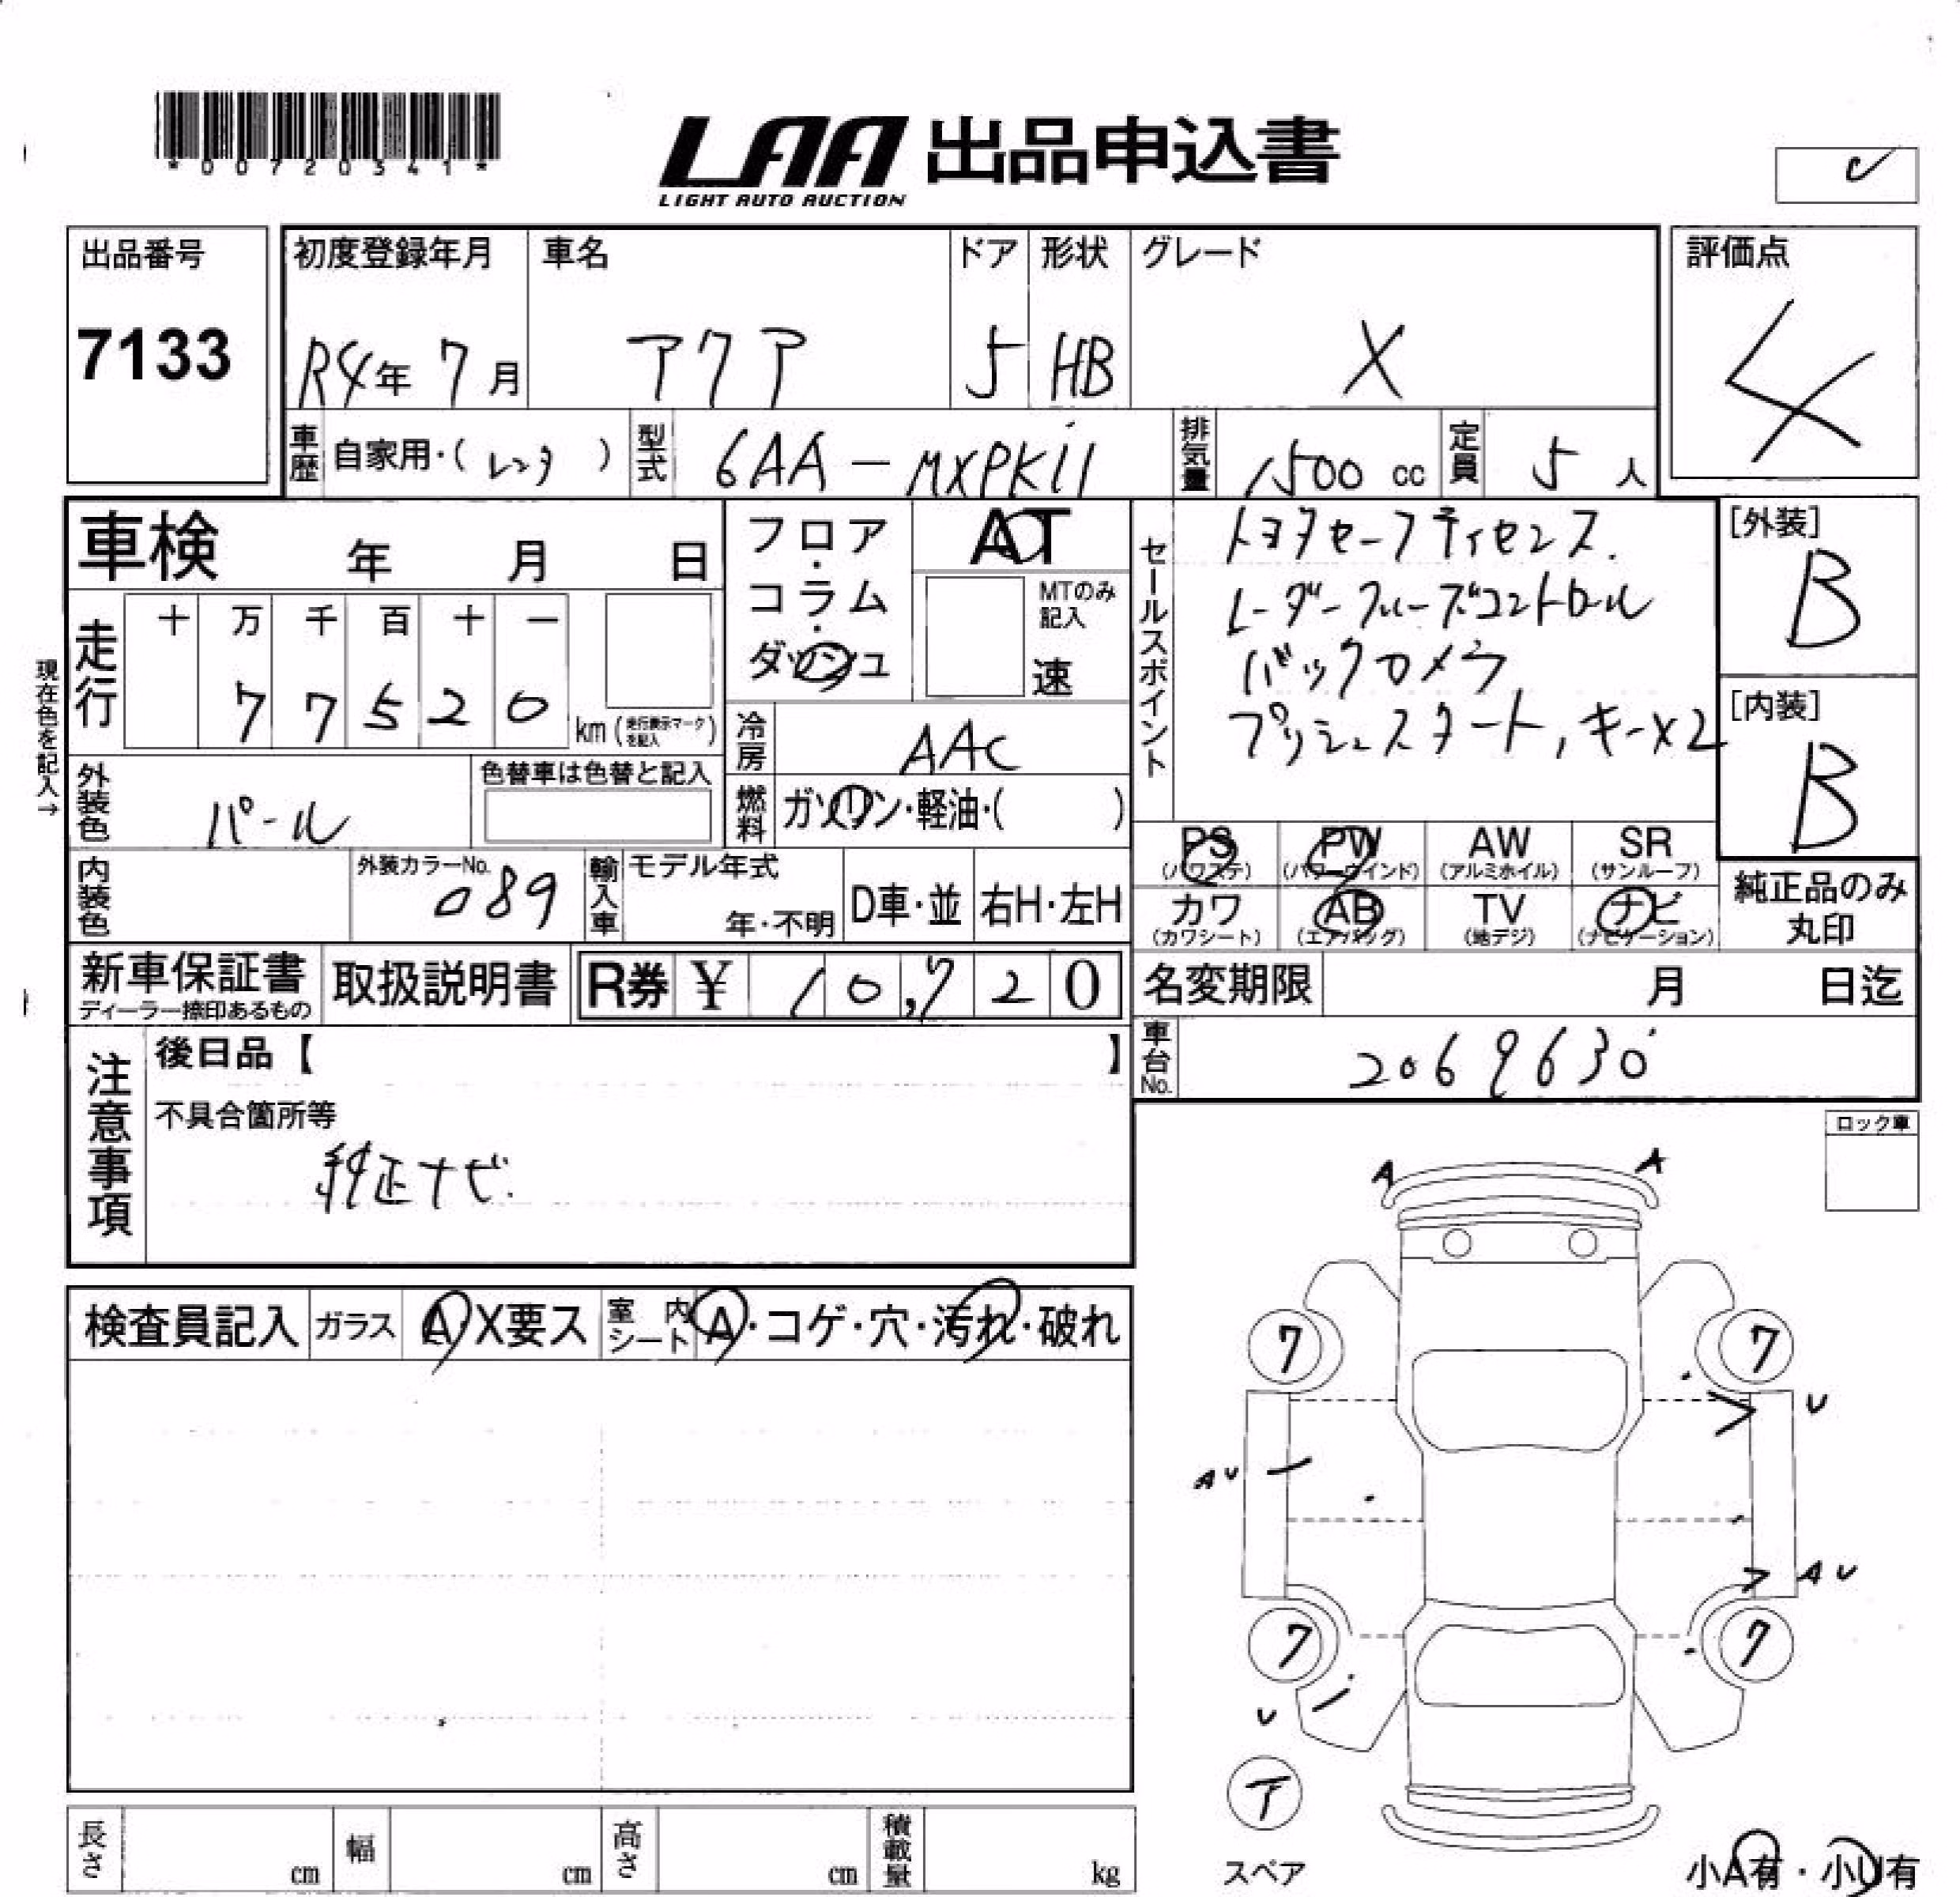 *00720341*
LAA 出品申込書
LIGHT AUTO AUCTION
出品番号
7133
初度登録年月
R4年 7月
車名
アクア
ドア
5
形状
HB
グレード
X
評価点
4
車歴 自家用・(レンタ)
型式 6AA-MXPK11
排気量 1500 cc
定員 5 人
車検 年 月 日
フロア・コラム・ダッシュ
AT
MTのみ記入
速
セールスポイント
トヨタセーフティセンス.
レーダークルーズコントロール
バックカメラ
プッシュスタート, キーX2
[外装]
B
[内装]
B
現在色を記入→
走行
十 万 千 百 十 一
7 7 5 2 0
km (走行表示マークを記入)
冷房 AAC
外装色 パール
色替車は色替と記入
燃料 ガソリン・軽油・( )
内装色
外装カラーNo.
089
輸入車
モデル年式
年・不明
D車・並
右H・左H
PS (パワステ)
PW (パワーウインド)
AW (アルミホイル)
SR (サンルーフ)
カワ (カワシート)
AB (エアバッグ)
TV (地デジ)
ナビ (ナビゲーション)
純正品のみ丸印
新車保証書
ディーラー捺印あるもの
取扱説明書
R券 ¥ 10,720
名変期限 月 日迄
車台No. 2069630
注意事項
後日品【 】
不具合箇所等
純正ナビ.
ロック車
検査員記入
ガラス A・X要ス
室内シート A・コゲ・穴・汚れ・破れ
A A
7 7
U
AU
AU
7 7
U
ア
スペア
小A有・小U有
長さ cm
幅 cm
高さ cm
積載量 kg